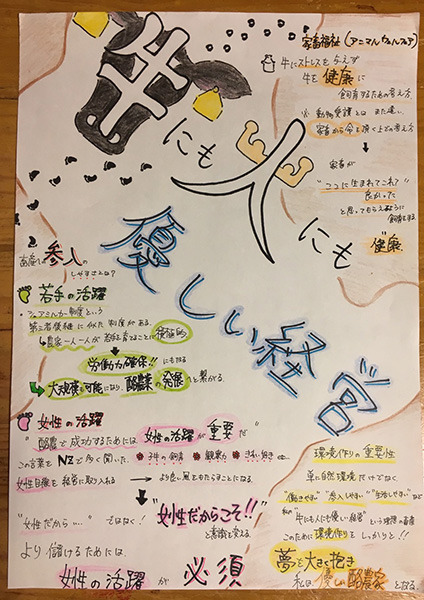 牛にも人にも
優しい経営
家畜福祉(アニマルウェルフェア)
牛にストレスを与えず
牛を健康に
飼育するための考え方
※ 動物愛護とはまた違い、
家畜から命を頂く上での考え方
家畜が
"ココに生まれてこれて
良かった"
と思ってもらえるように
飼育する
健康
畜産への参入の
しやすさとは?
若手の活躍
・ファミルカー制度という
第三者継承に似た制度がある。
農家一人一人が若手を育てることに積極的
労働力確保!!にもなる
大規模も可能になり、酪農業の発展へと繋がる
女性の活躍
"酪農で成功するためには女性の活躍が重要だ"
この言葉をNZで多く聞いた。
子牛の飼育 観察力 きれい好き
女性目線を経営に取り入れる → より良い風をもたらすことになる
"女性だから…"ではなく!
"女性だからこそ!!"
と意識を変える
より儲けるためには、
女性の活躍が必須
環境作りの重要性
単に自然環境だけでなく
"働きやすさ" "参入しやすい" "生活しやすい"など
私の"牛にも人にも優しい経営"という理想の畜産
このために環境作りをしっかりと!!
夢を大きく抱き
私は優しい酪農家となる